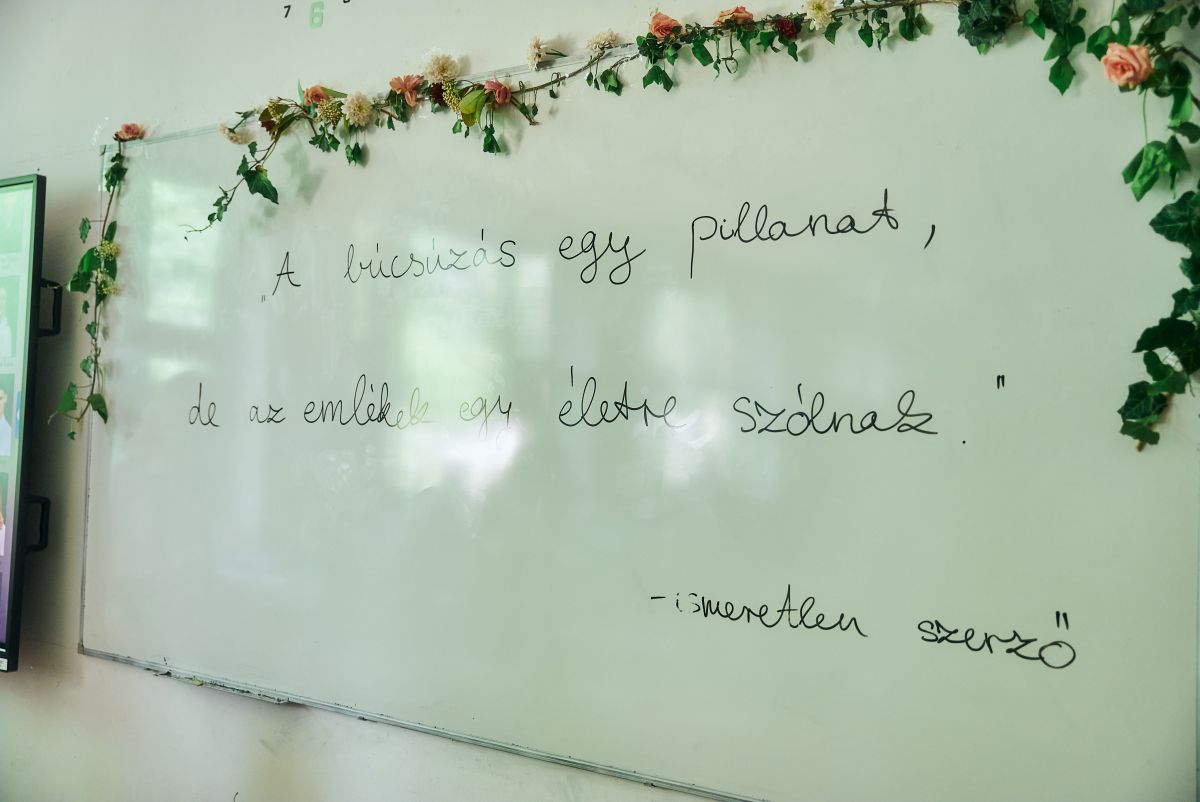 7 6
„A búcsúzás egy pillanat,
de az emlékek egy életre szólnak."
-ismeretlen szerző